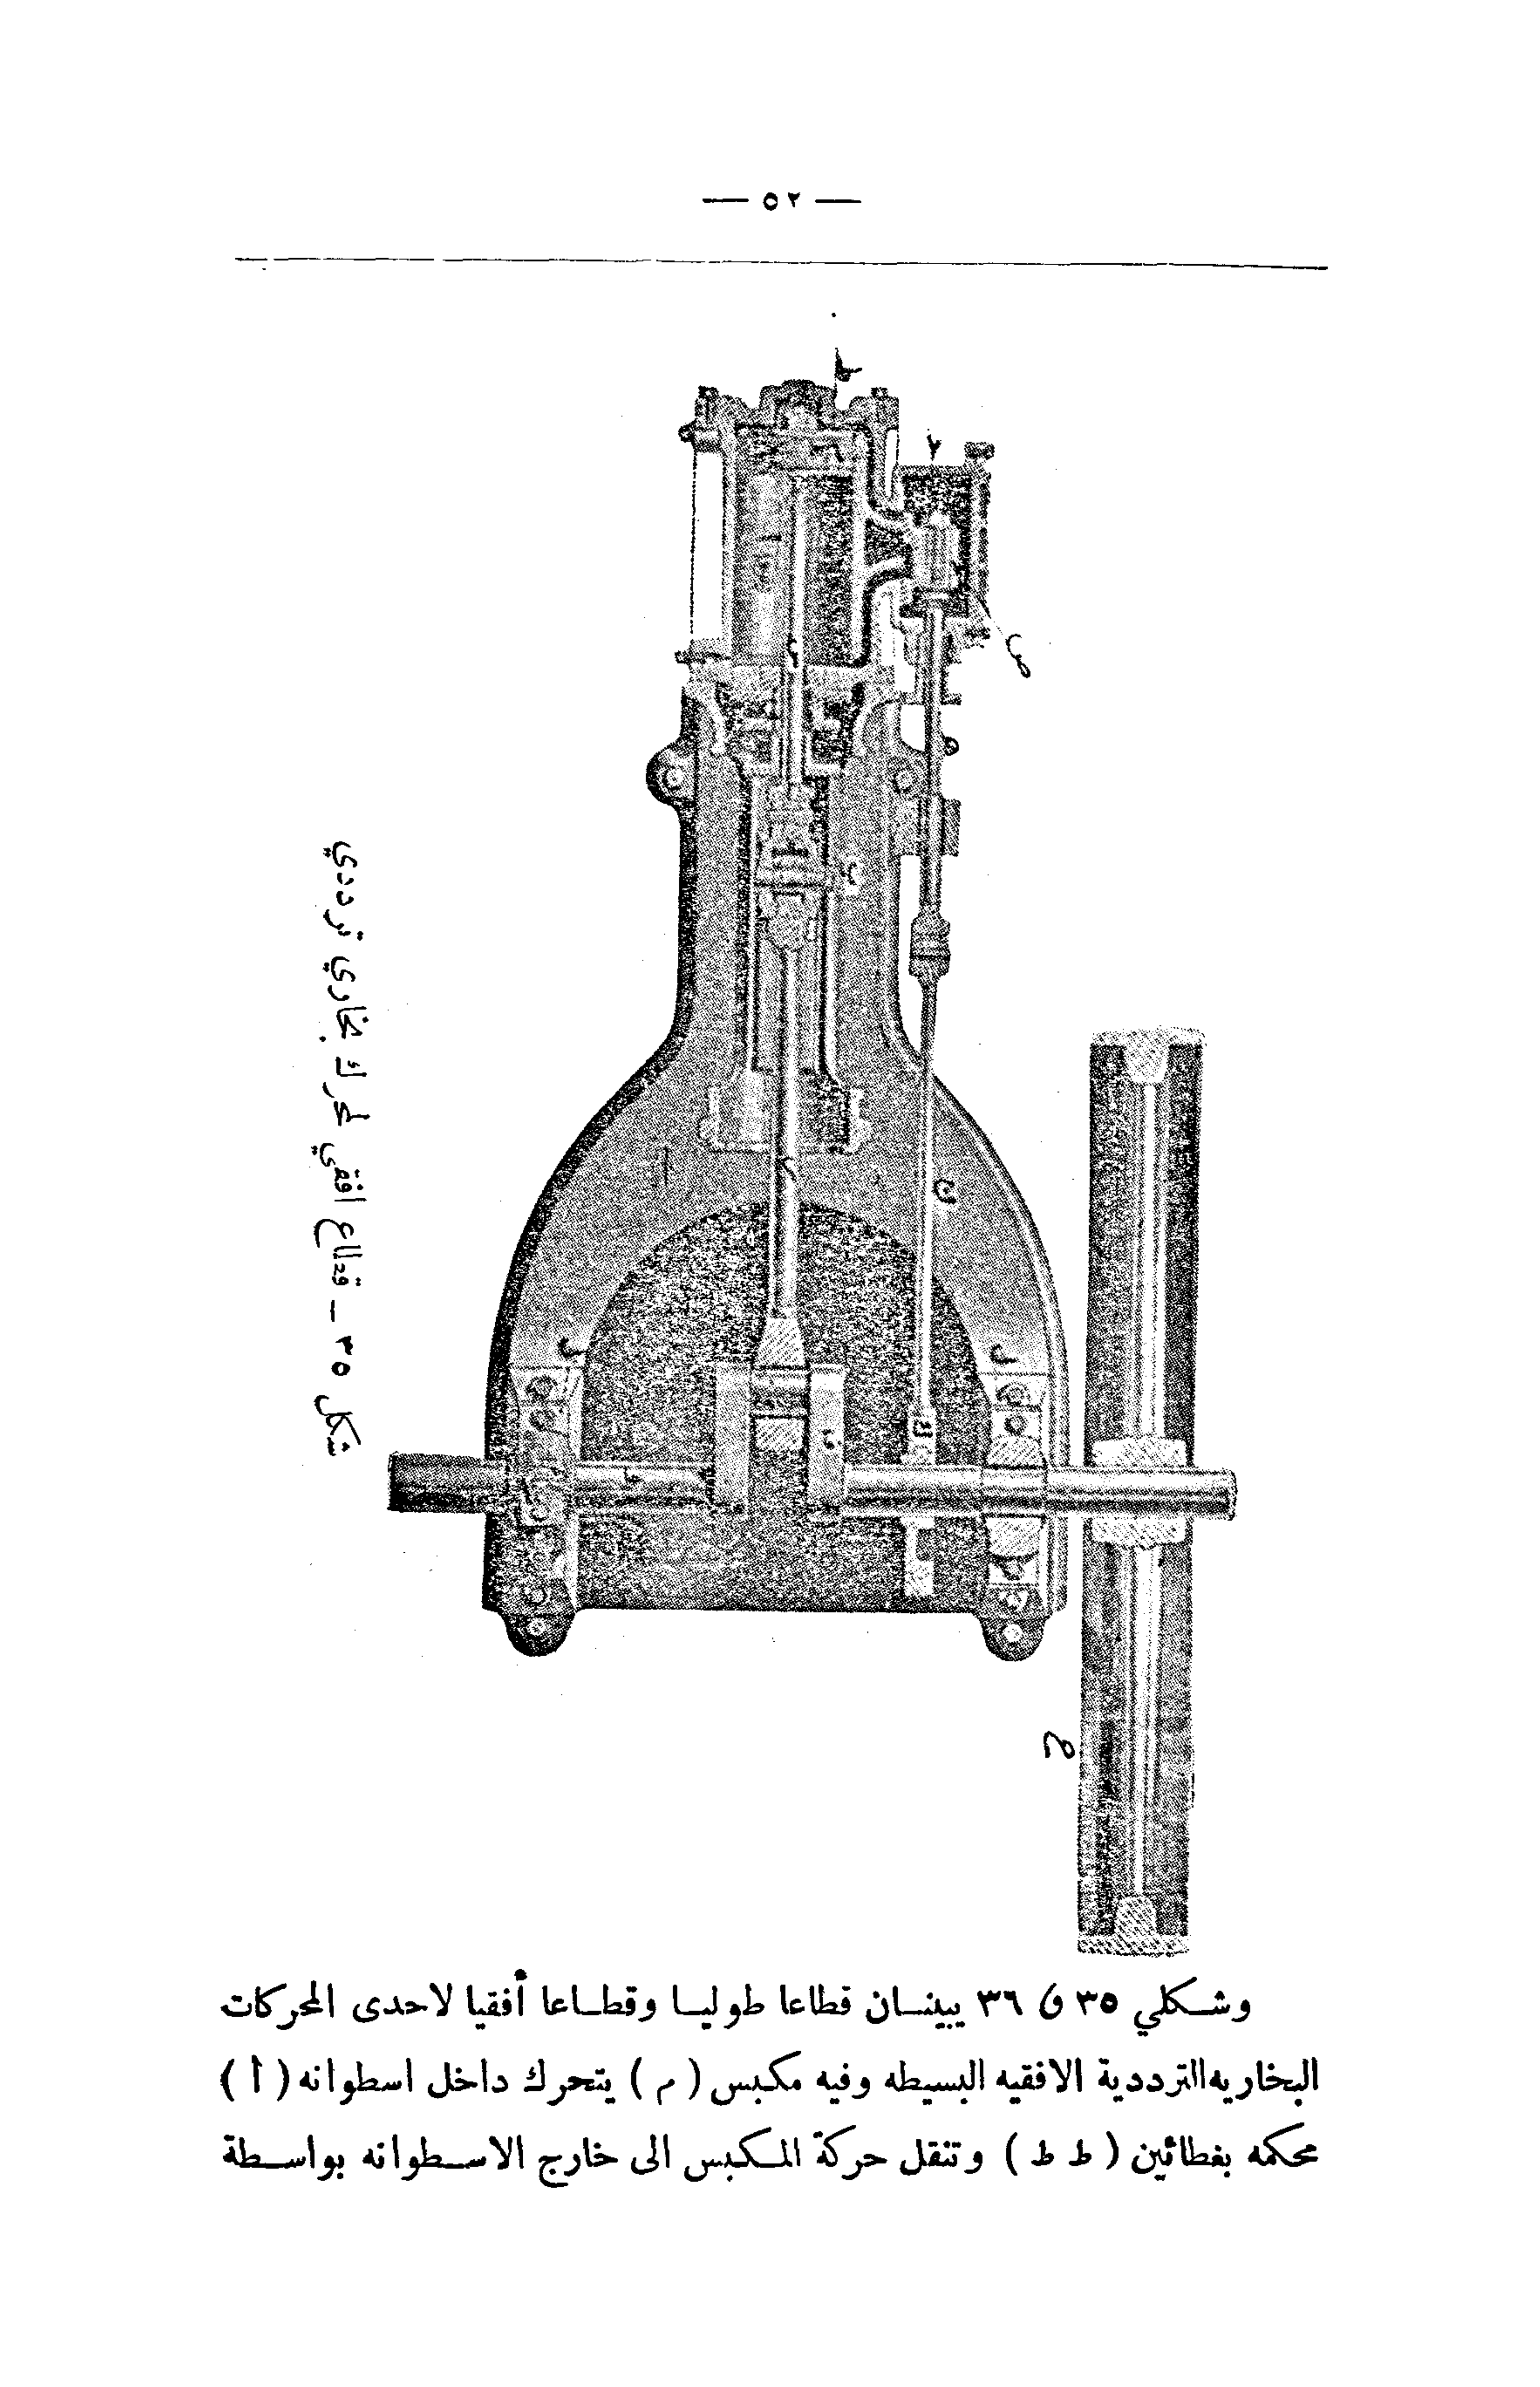 — ٥٢ —
ط
ص
ن
ل
ل
ع
شكل ٣٥ – قطاع افقي لمحرك بخاري ترددي
وشكلي ٣٥ و ٣٦ يبينان قطاعا طوليا وقطاعا أفقيا لاحدى المحركات
البخاريه الترددية الافقيه البسيطه وفيه مكبس ( م ) يتحرك داخل اسطوانه ( أ )
محكمه بغطائين ( ط ط ) وتنقل حركة المكبس الى خارج الاسطوانه بواسطة